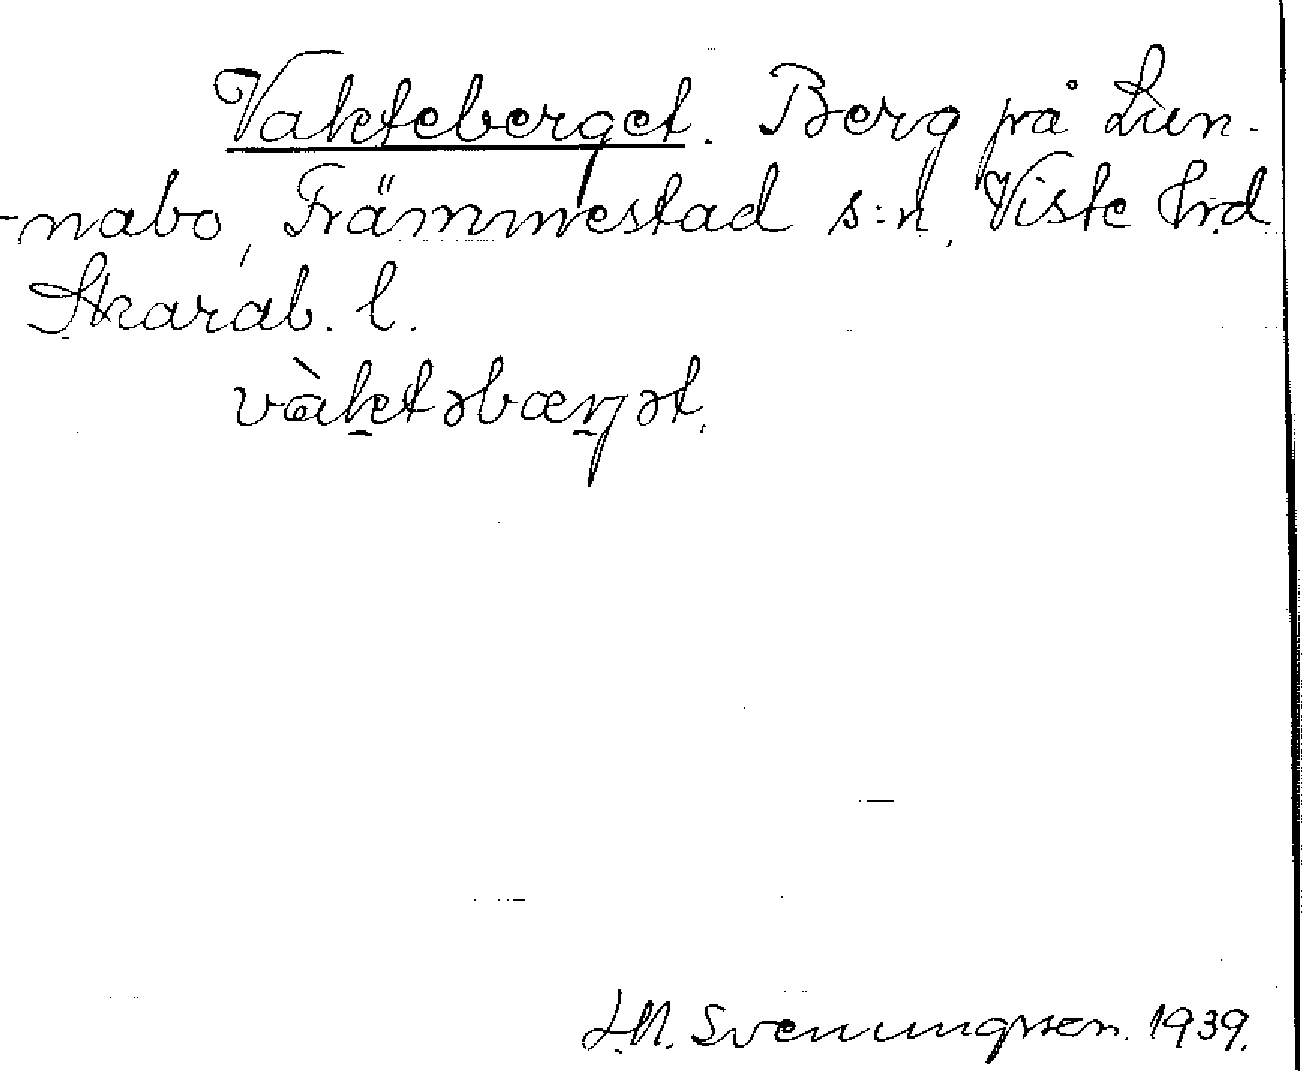 Vakteberget. Berg på Lun-
-nabo, Främmestad s:n, Viste hrd
Skarab. l.
vàktəbæŋət.
J.N. Svenungsson. 1939.